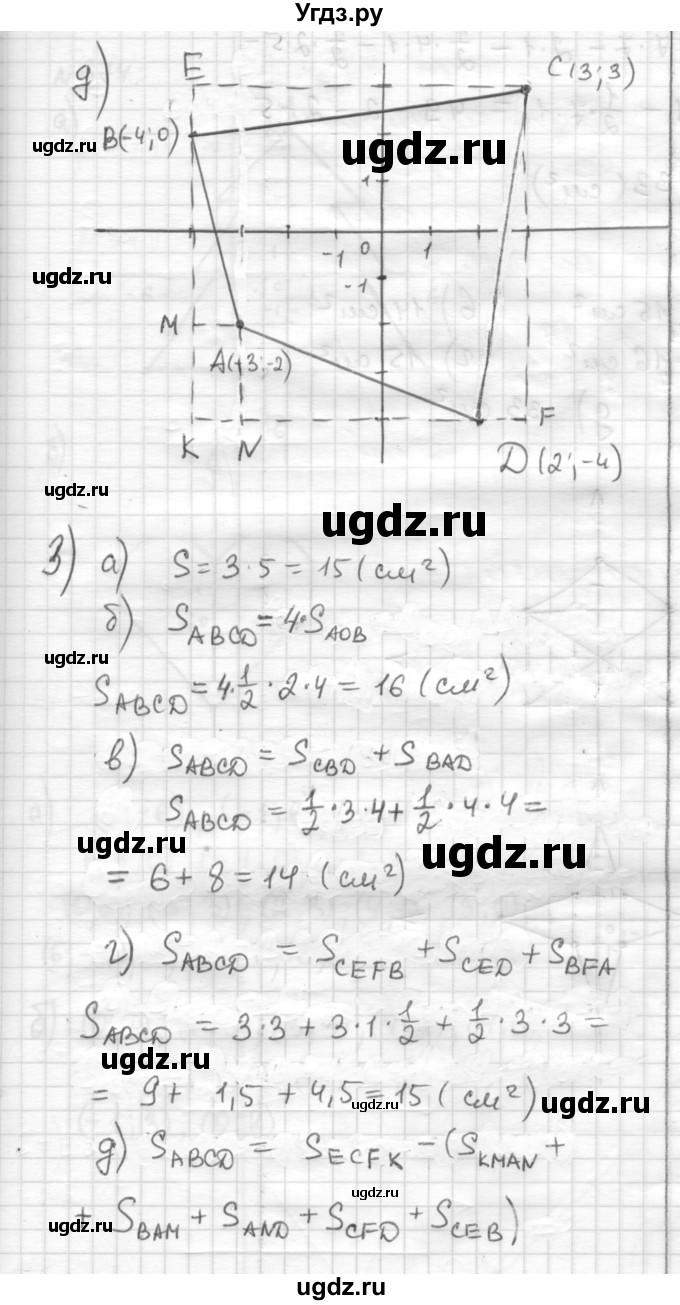 Угдз.ру
д)
E
C(3; 3)
B(-4; 0)
ugdz.ru
ugdz.ru
1
-1 0 1
ugdz.ru
-1
M
A(-3; -2)
K N F
D(2; -4)
ugdz.ru
ugdz.ru
3) а) S = 3·5 = 15 (см²)
б) S_ABCD = 4·S_AOB
ugdz.ru
S_ABCD = 4·1/2·2·4 = 16 (см²)
в) S_ABCD = S_CBD + S_BAD
S_ABCD = 1/2·3·4 + 1/2·4·4 =
ugdz.ru
ugdz.ru
= 6 + 8 = 14 (см²)
г) S_ABCD = S_CEFB + S_CED + S_BFA
S_ABCD = 3·3 + 3·1·1/2 + 1/2·3·3 =
ugdz.ru
= 9 + 1,5 + 4,5 = 15 (см²)
ugdz.ru
ugdz.ru
д) S_ABCD = S_ECFK - (S_KMAN +
ugdz.ru
+ S_BAM + S_AND + S_CFD + S_CEB)
ugdz.ru
ugdz.ru